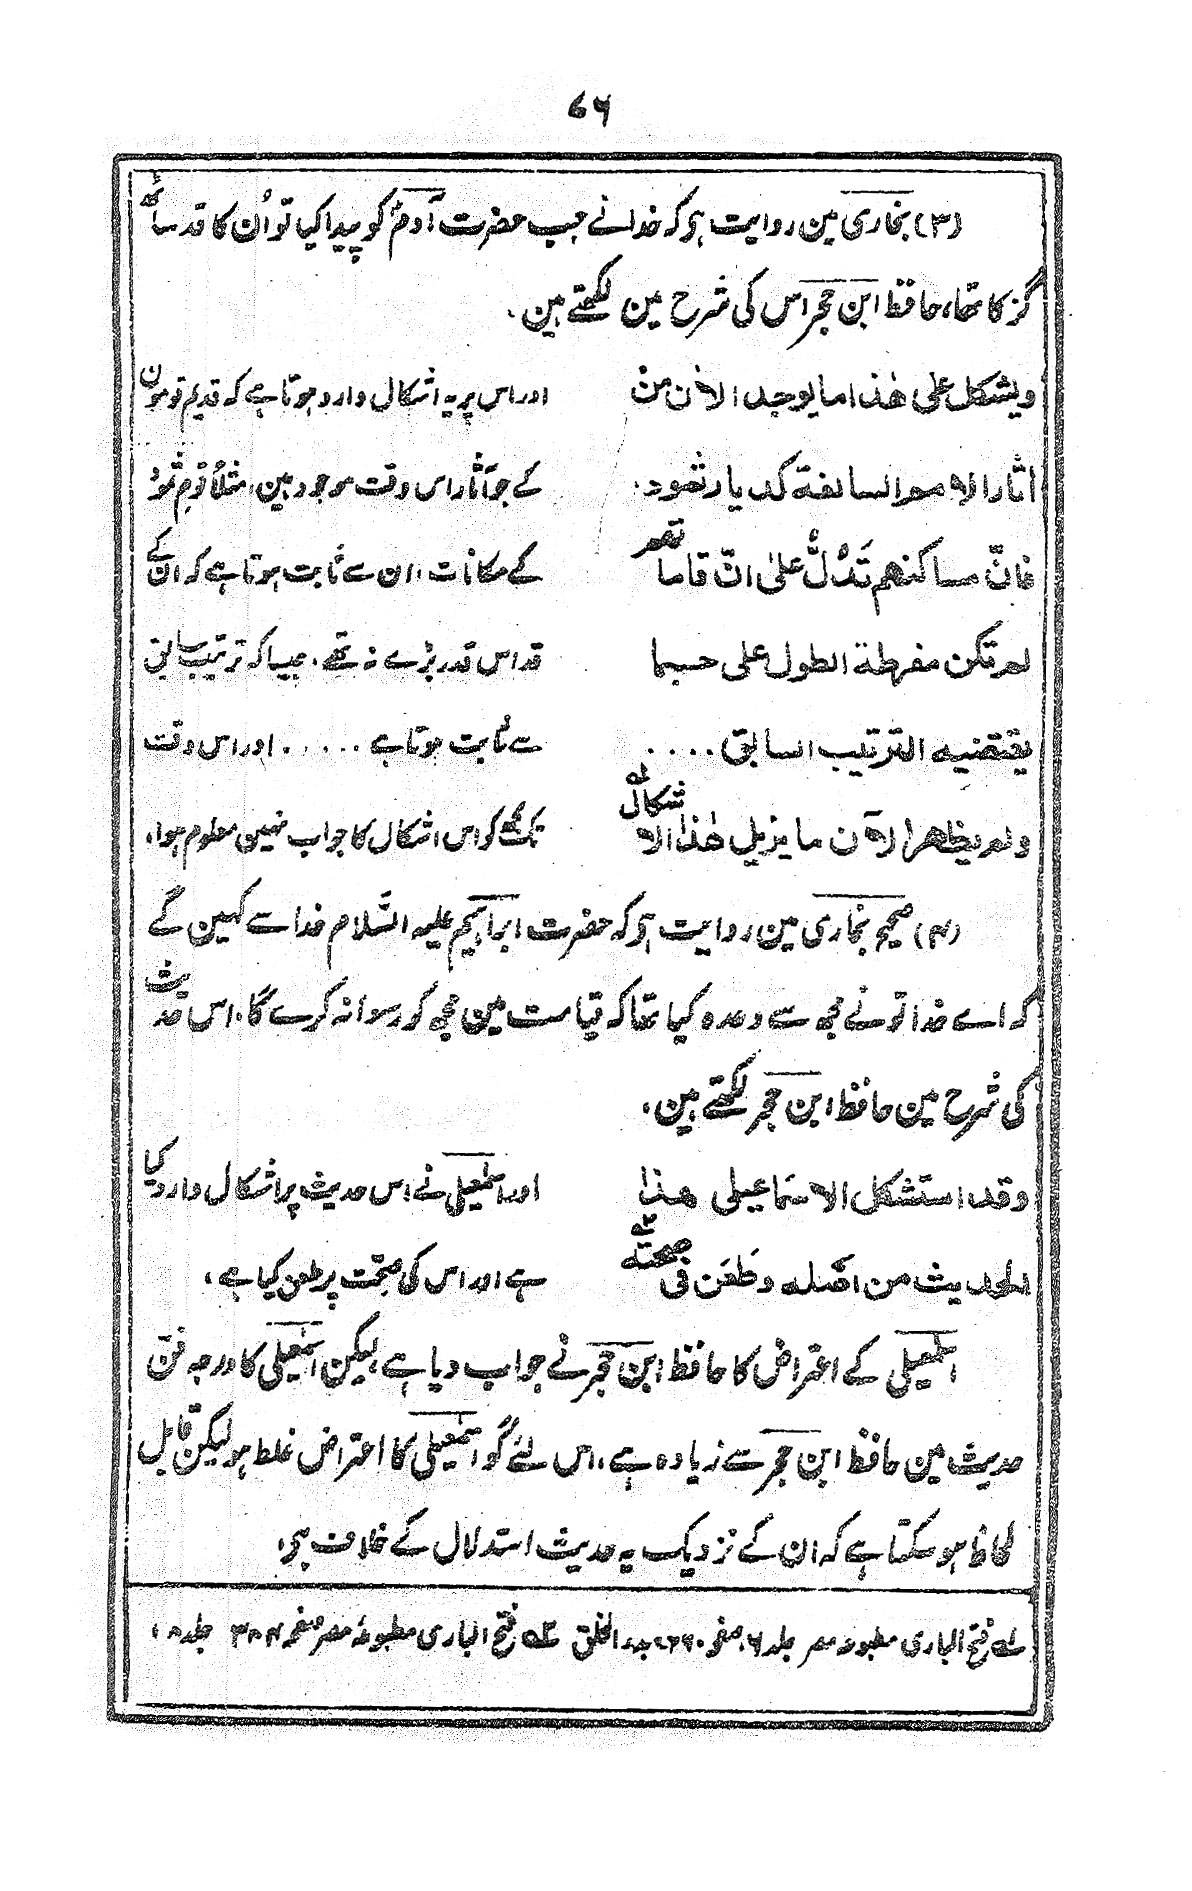 ۷۶
(۳) بخاری مین روایت ہو کہ خدا نے جب حضرت آدمؑ کو پیدا کیا تو اُن کا قد ساٹھ
گز کا تھا، حافظ ابن حجر اس کی شرح مین لکھتے ہین،
ویشکل علی ھٰذا ما یوجد الاٰن من
اٰثار الامم السالفة کدیار ثمود،
فانّ مساکنھم تَدُلُّ علیٰ انّ قاماتھم
لم تکن مفرطة الطول علی حسبما
یقتضیه الترتیب السابق ....
ولم یظھر الآن ما یزیل ھٰذا الاشکال لہ
اور اس پر یہ اشکال وارد ہوتا ہے کہ قدیم قومون
کے جو آثار اس وقت موجود ہین، مثلاً قوم ثمود
کے مکانات، ان سے ثابت ہوتا ہے کہ ان کے
قد اس قدر بڑے نہ تھے، جیسا کہ ترتیب سابق
سے ثابت ہوتا ہے ..... اور اس وقت
تک مجھے کو اس اشکال کا جواب نہین معلوم ہوا،
(۴) صحیح بخاری مین روایت ہو کہ حضرت ابراہیم علیہ السّلام خدا سے کہین گے
کہ اے خدا تو نے مجھ سے وعدہ کیا تھا کہ قیامت مین مجھ کو رسوا نہ کرے گا، اس حدیث
کی شرح مین حافظ ابن حجر لکھتے ہین،
وقد استشکل الاسماعیلی ھذا
الحدیث من اصله وطَعَن فی صحّته ۲ہ
اور اسمٰعیلی نے اس حدیث پر اشکال وارد کیا
ہے اور اس کی صحّت پر طعن کیا ہے،
اسمٰعیلی کے اعتراض کا حافظ ابن حجر نے جواب دیا ہے، لیکن اسمٰعیلی کا درجہ فن
حدیث مین حافظ ابن حجر سے زیادہ ہے، اس لئے گو اسمٰعیلی کا اعتراض غلط ہو لیکن قابل
لحاظ ہو سکتا ہے کہ ان کے نزدیک یہ حدیث استدلال کے خلاف ہی،
لہ فتح الباری مطبوعہ مصر جلد ۶، صفحہ ۲۶۰، بدء الخلق ۲ہ فتح الباری مطبوعہ مصر صفحہ ۳۸۴ جلد ۸،